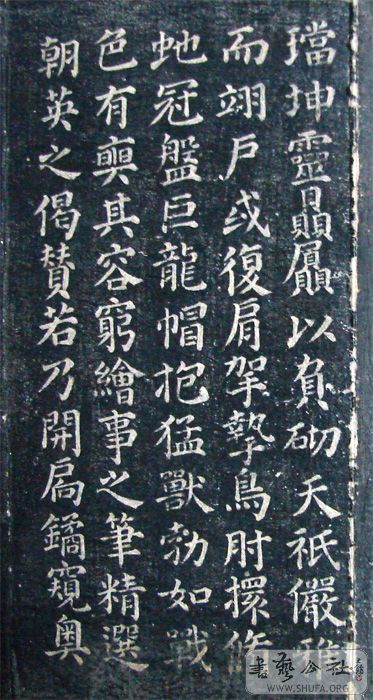 璫坤靈贔屭以負砌天祇儼雅
而翊戶或復肩挐摯鳥肘擐脩
虵冠盤巨龍帽抱猛獸勃如戰
色有奭其容窮繪事之筆精選
朝英之偈贊若乃開扃鐍窺奧
書藝公社
WWW.SHUFA.ORG